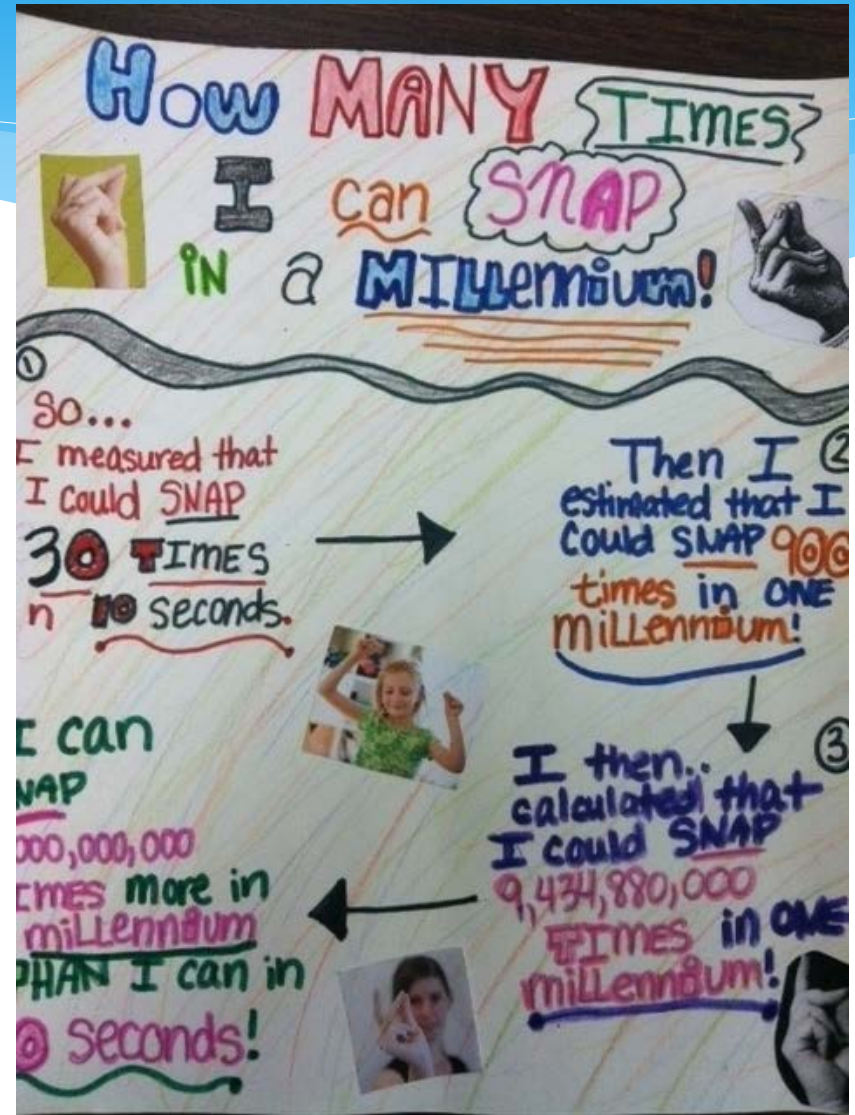 How MANY TIMES
I can SNAP
iN a MILLennium!
1
SO...
I measured that
I could SNAP
30 TIMES
n 10 seconds.
2
Then I
estimated that I
could SNAP 900
times in ONE
MiLLennium!
3
I then..
calculated that
I could SNAP
9,434,880,000
TIMES in ONE
millennium!
I can
NAP
000,000,000
IMES more in
miLLennium
THAN I can in
0 seconds!